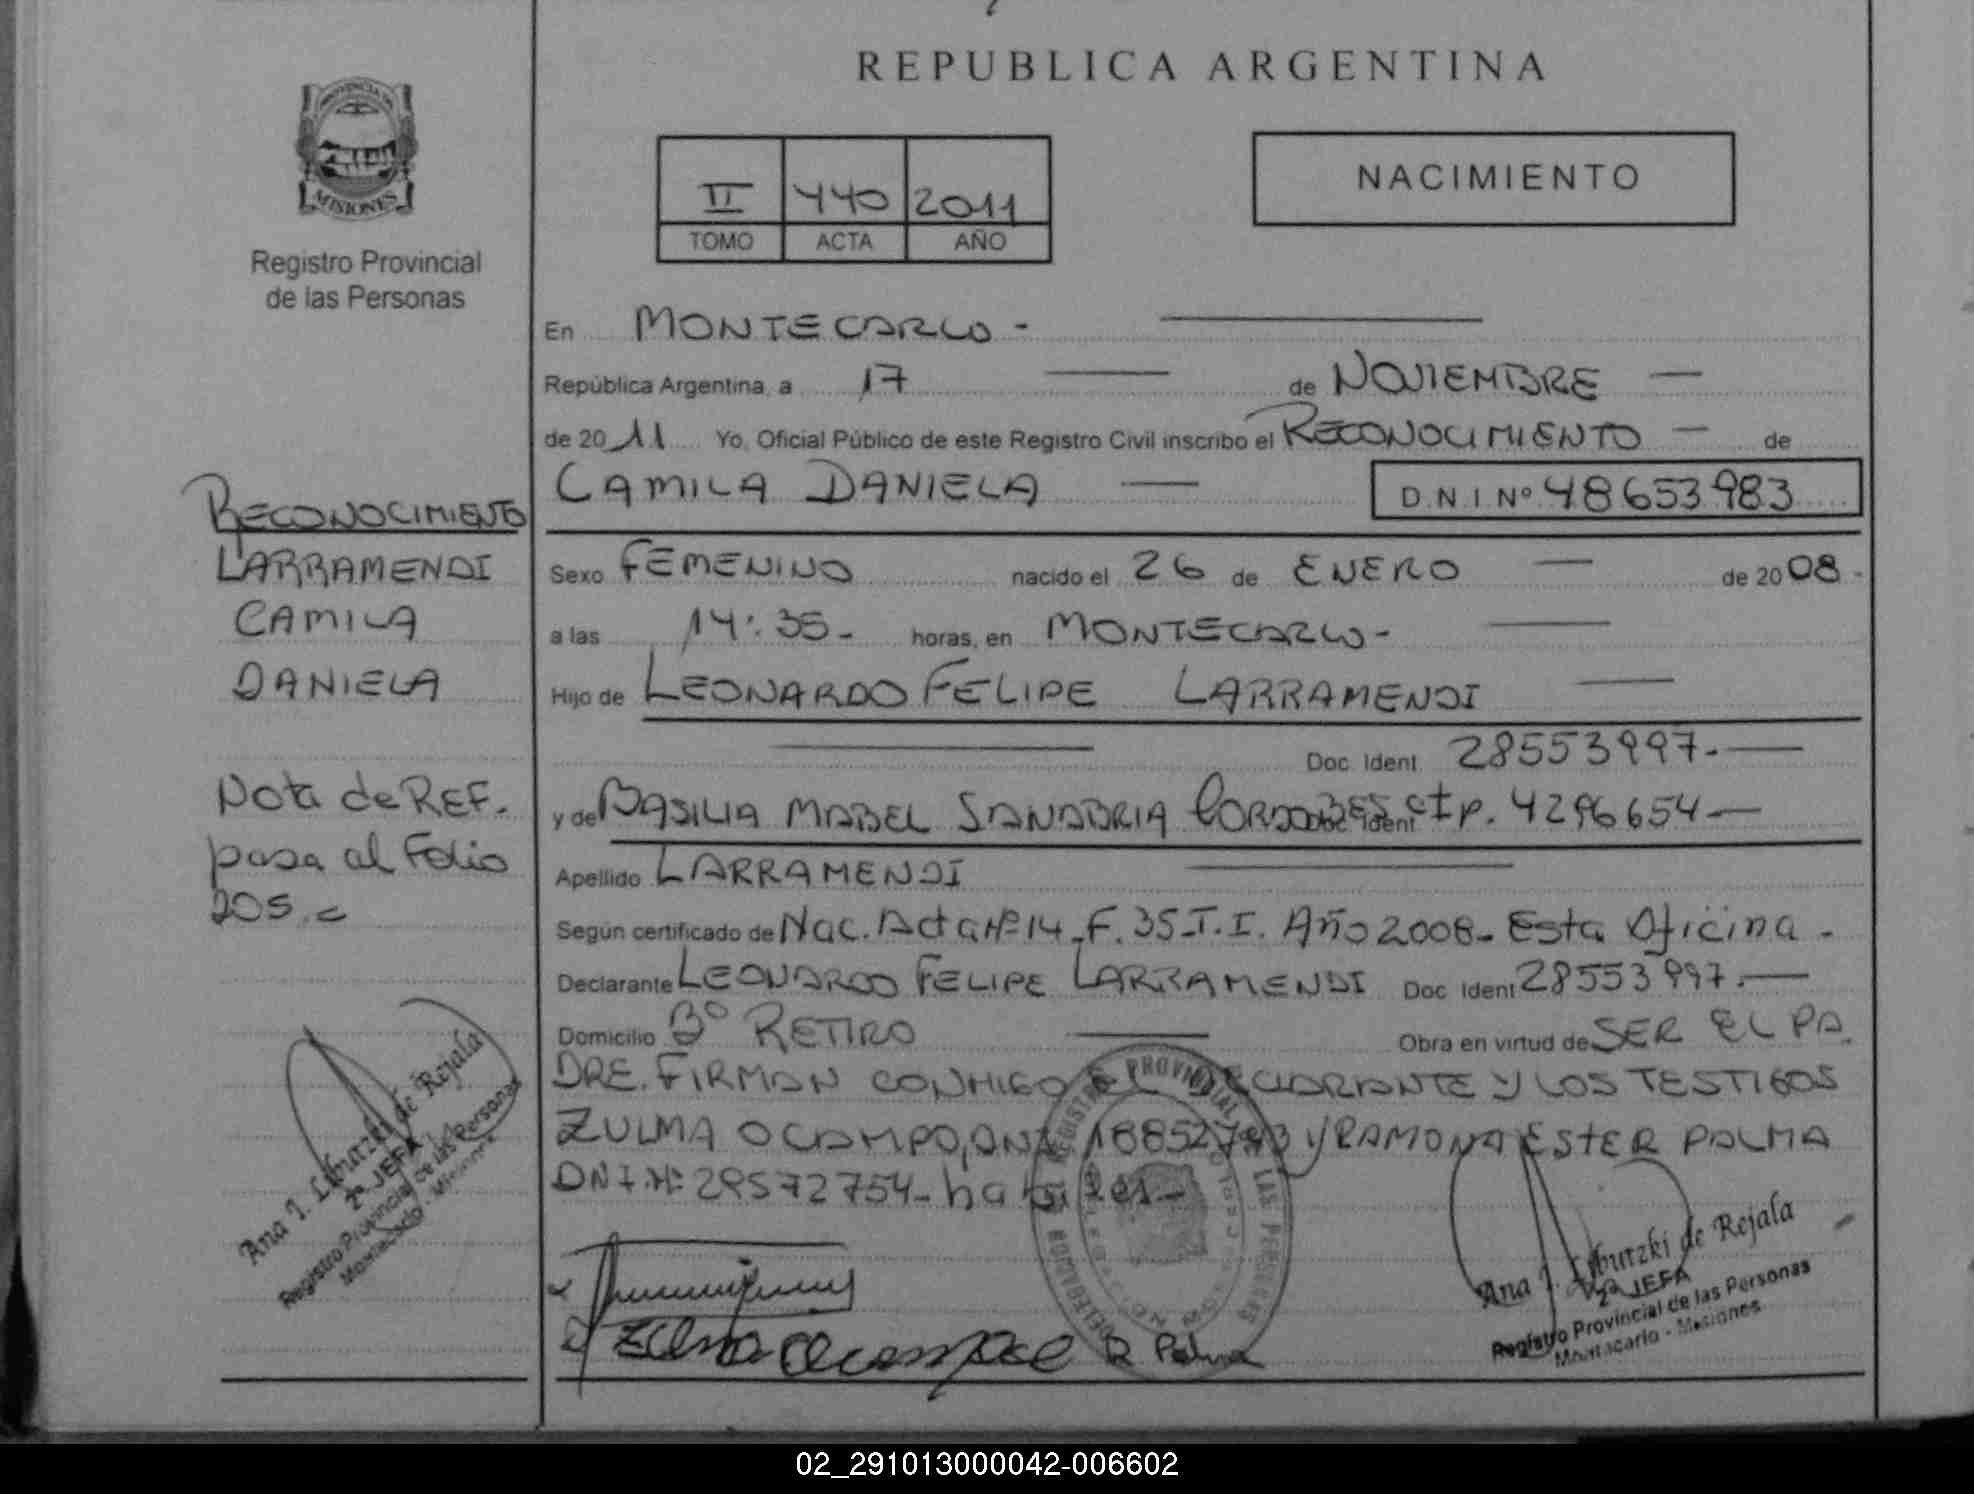 REPUBLICA ARGENTINA
PROVINCIA DE
MISIONES
Registro Provincial
de las Personas
NACIMIENTO
II 440 2011
TOMO ACTA AÑO
En MONTECARLO -
República Argentina, a 17 de NOVIEMBRE
de 2011 Yo, Oficial Público de este Registro Civil inscribo el RECONOCIMIENTO de
CAMILA DANIELA D.N.I. Nº 48653983
Sexo FEMENINO nacido el 26 de ENERO de 2008.
a las 14:35- horas, en MONTECARLO-
Hijo de LEONARDO FELIPE LARRAMENDI
Doc. Ident. 28553997.-
y de BASILIA MABEL SANABRIA Doc. Ident 4296654-
Apellido LARRAMENDI
Según certificado de Nac. Acta Nº 14-F. 35-T. I. Año 2008- Esta Oficina -
Declarante LEONARDO FELIPE LARRAMENDI Doc Ident 28553997.-
Domicilio Bº RETIRO Obra en virtud de SER EL PA.
DRE. FIRMAN CONMIGO EL DECLARANTE Y LOS TESTIGOS
ZULMA OCAMPO, DNI y RAMONA ESTER PALMA
DNI.Nº 29572754- habiles-
Zulma Ocampo R Palma
REGISTRO PROVINCIAL
LAS PERSONAS
Ana I. de Rejala
2ª JEFA
Registro Provincial de las Personas
Montecarlo - Misiones
RECONOCIMIENTO
LARRAMENDI
CAMILA
DANIELA
Nota de REF.
pasa al Folio
205.
Ana I. de Rejala
2ª JEFA
Registro Provincial de las Personas
Montecarlo - Misiones
02_291013000042-006602